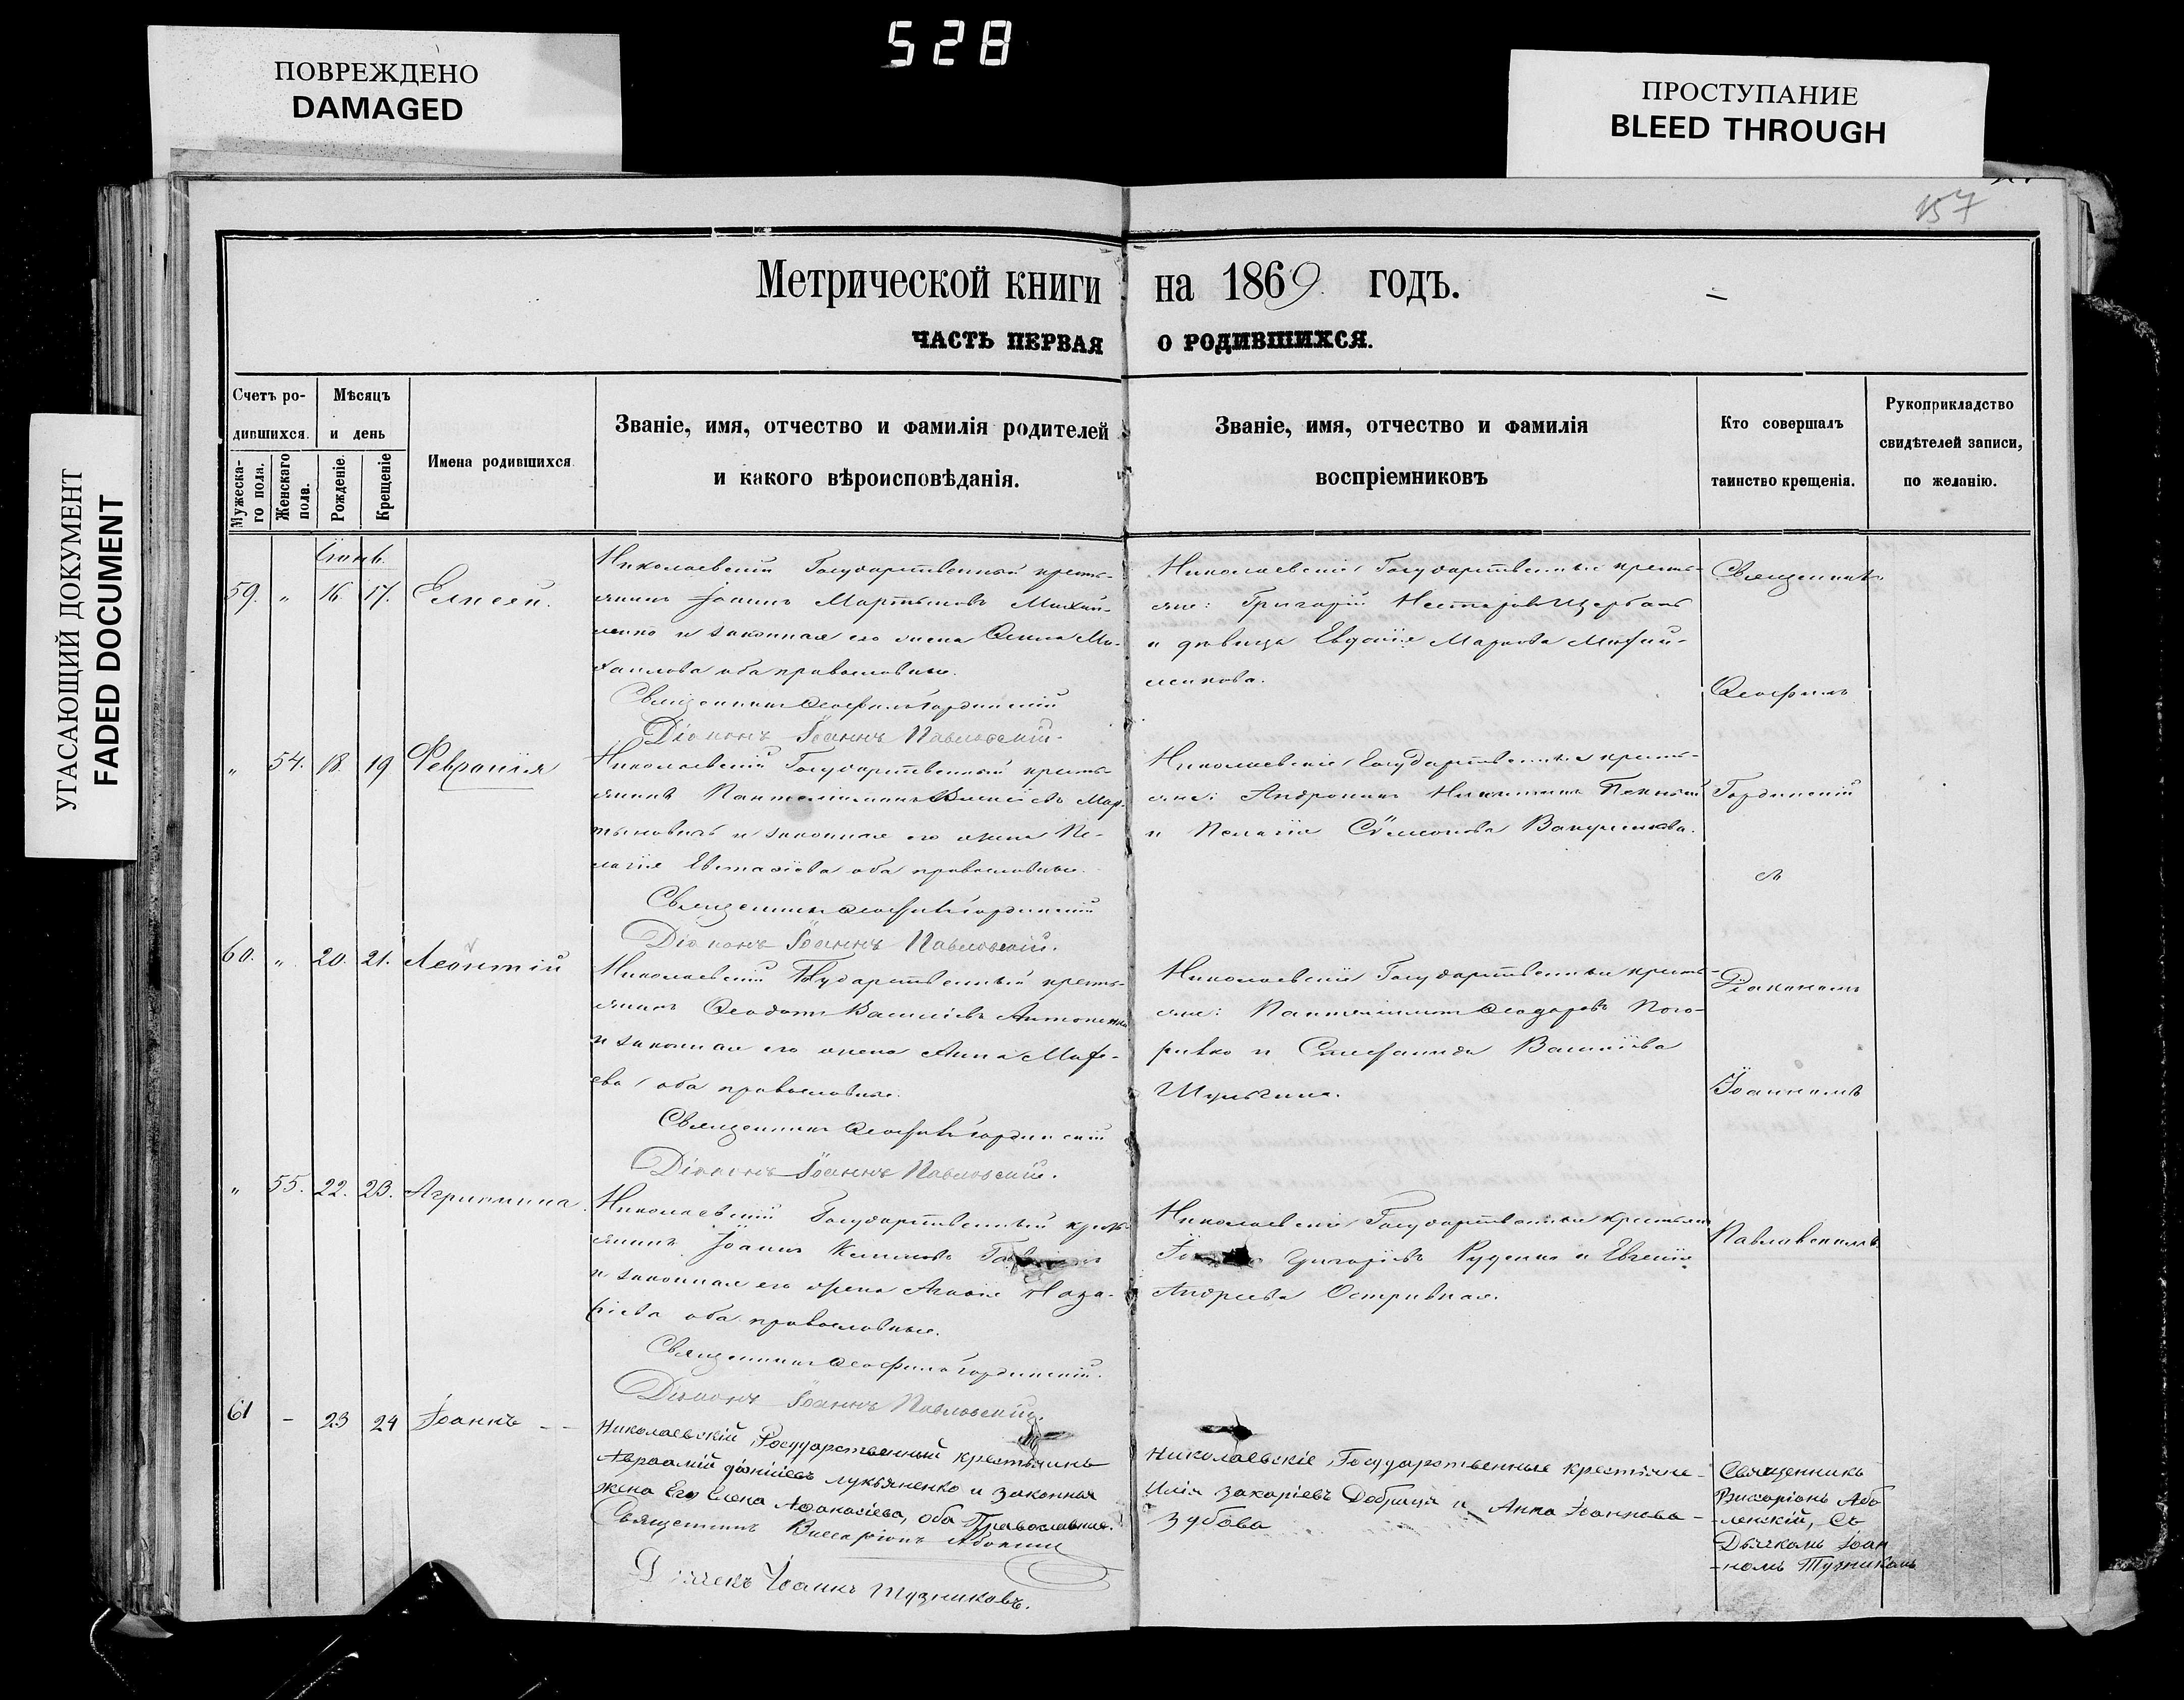 528
ПОВРЕЖДЕНО
DAMAGED
ПРОСТУПАНИЕ
BLEED THROUGH
УГАСАЮЩИЙ ДОКУМЕНТ
FADED DOCUMENT
157
Метрической книги на 1869 годъ.
ЧАСТЬ ПЕРВАЯ О РОДИВШИХСЯ.
Счетъ ро-
дившихся.
Мужеска-
го пола.
Женскаго
пола.
Мѣсяцъ
и день
Рожденіе.
Крещеніе
Имена родившихся
Званіе, имя, отчество и фамилія родителей
и какого вѣроисповѣданія.
Званіе, имя, отчество и фамилія
воспріемниковъ
Кто совершалъ
таинство крещенія.
Рукоприкладство
свидѣтелей записи,
по желанію.
Іюнь.
59. " 16 17. Елисей.
Николаевскій Государственный кресть-
янинъ Іоаннъ Мартыновъ
и законная его жена Ми-
хаилова оба православные.
Священникъ Ѳеофилъ Гординскій
Діаконъ Іоаннъ Павловскій.
Николаевскіе Государственные кресть-
яне: Григорій Нестеровъ Щербакъ
и дѣвица Евдокія Маркова Михай-
ленкова.
Священникъ
Ѳеофилъ
" 54. 18. 19 Февронія
Николаевскій Государственный кресть-
янинъ Пантелеимонъ Мар-
тыновичъ и законная его жена Пе-
лагія Евстафіева оба православные.
Священникъ Ѳеофилъ Гординскій
Діаконъ Іоаннъ Павловскій.
Николаевскіе Государственные кресть-
яне: Андроникъ
и Пелагія Сѵмеонова
Гординскій
съ
60. " 20. 21. Леонтій
Николаевскій Государственный кресть-
янинъ Ѳеодотъ Василіевъ Антоненко
и законная его жена Анна Маѳе-
ева оба православные.
Священникъ Ѳеофилъ Гординскій
Діаконъ Іоаннъ Павловскій.
Николаевскіе Государственные кресть-
яне: Пантелеимонъ Ѳеодоровъ Пого-
рилко и Стефанида Василіева
Шульгина.
Діакономъ
Іоанномъ
" 55. 22. 23. Агриппина.
Николаевскій Государственный кресть-
янинъ Іоаннъ
и законная его жена Агафія Наза-
ріева оба православные.
Священникъ Ѳеофилъ Гординскій.
Діаконъ Іоаннъ Павловскій.
Николаевскіе Государственные крестьяне
Григоріевъ Руденко и Евгенія
Андреева Остривная.
Павловскимъ.
61 - 23 24 Іоаннъ - -
Николаевскій Государственный крестьянинъ
Авраамій Діонисіевъ Лукьяненко и законная
жена Его Елена Афанасіева, оба Православные.
Священникъ Виссаріонъ
Дьячекъ Іоаннъ Тузниковъ.
Николаевскіе Государственные крестьяне -
Илія Захаріевъ Добрица и Анна Іоаннова -
Зубова
Священникъ
Висаріонъ Або
-ленскій, Съ
Дьячкомъ Іоан
-номъ Тузниковъ